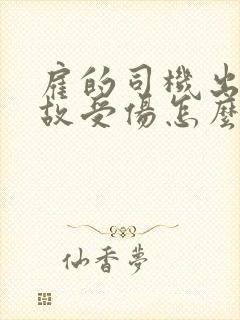 雇的司機出
故受傷怎麼
仙香夢